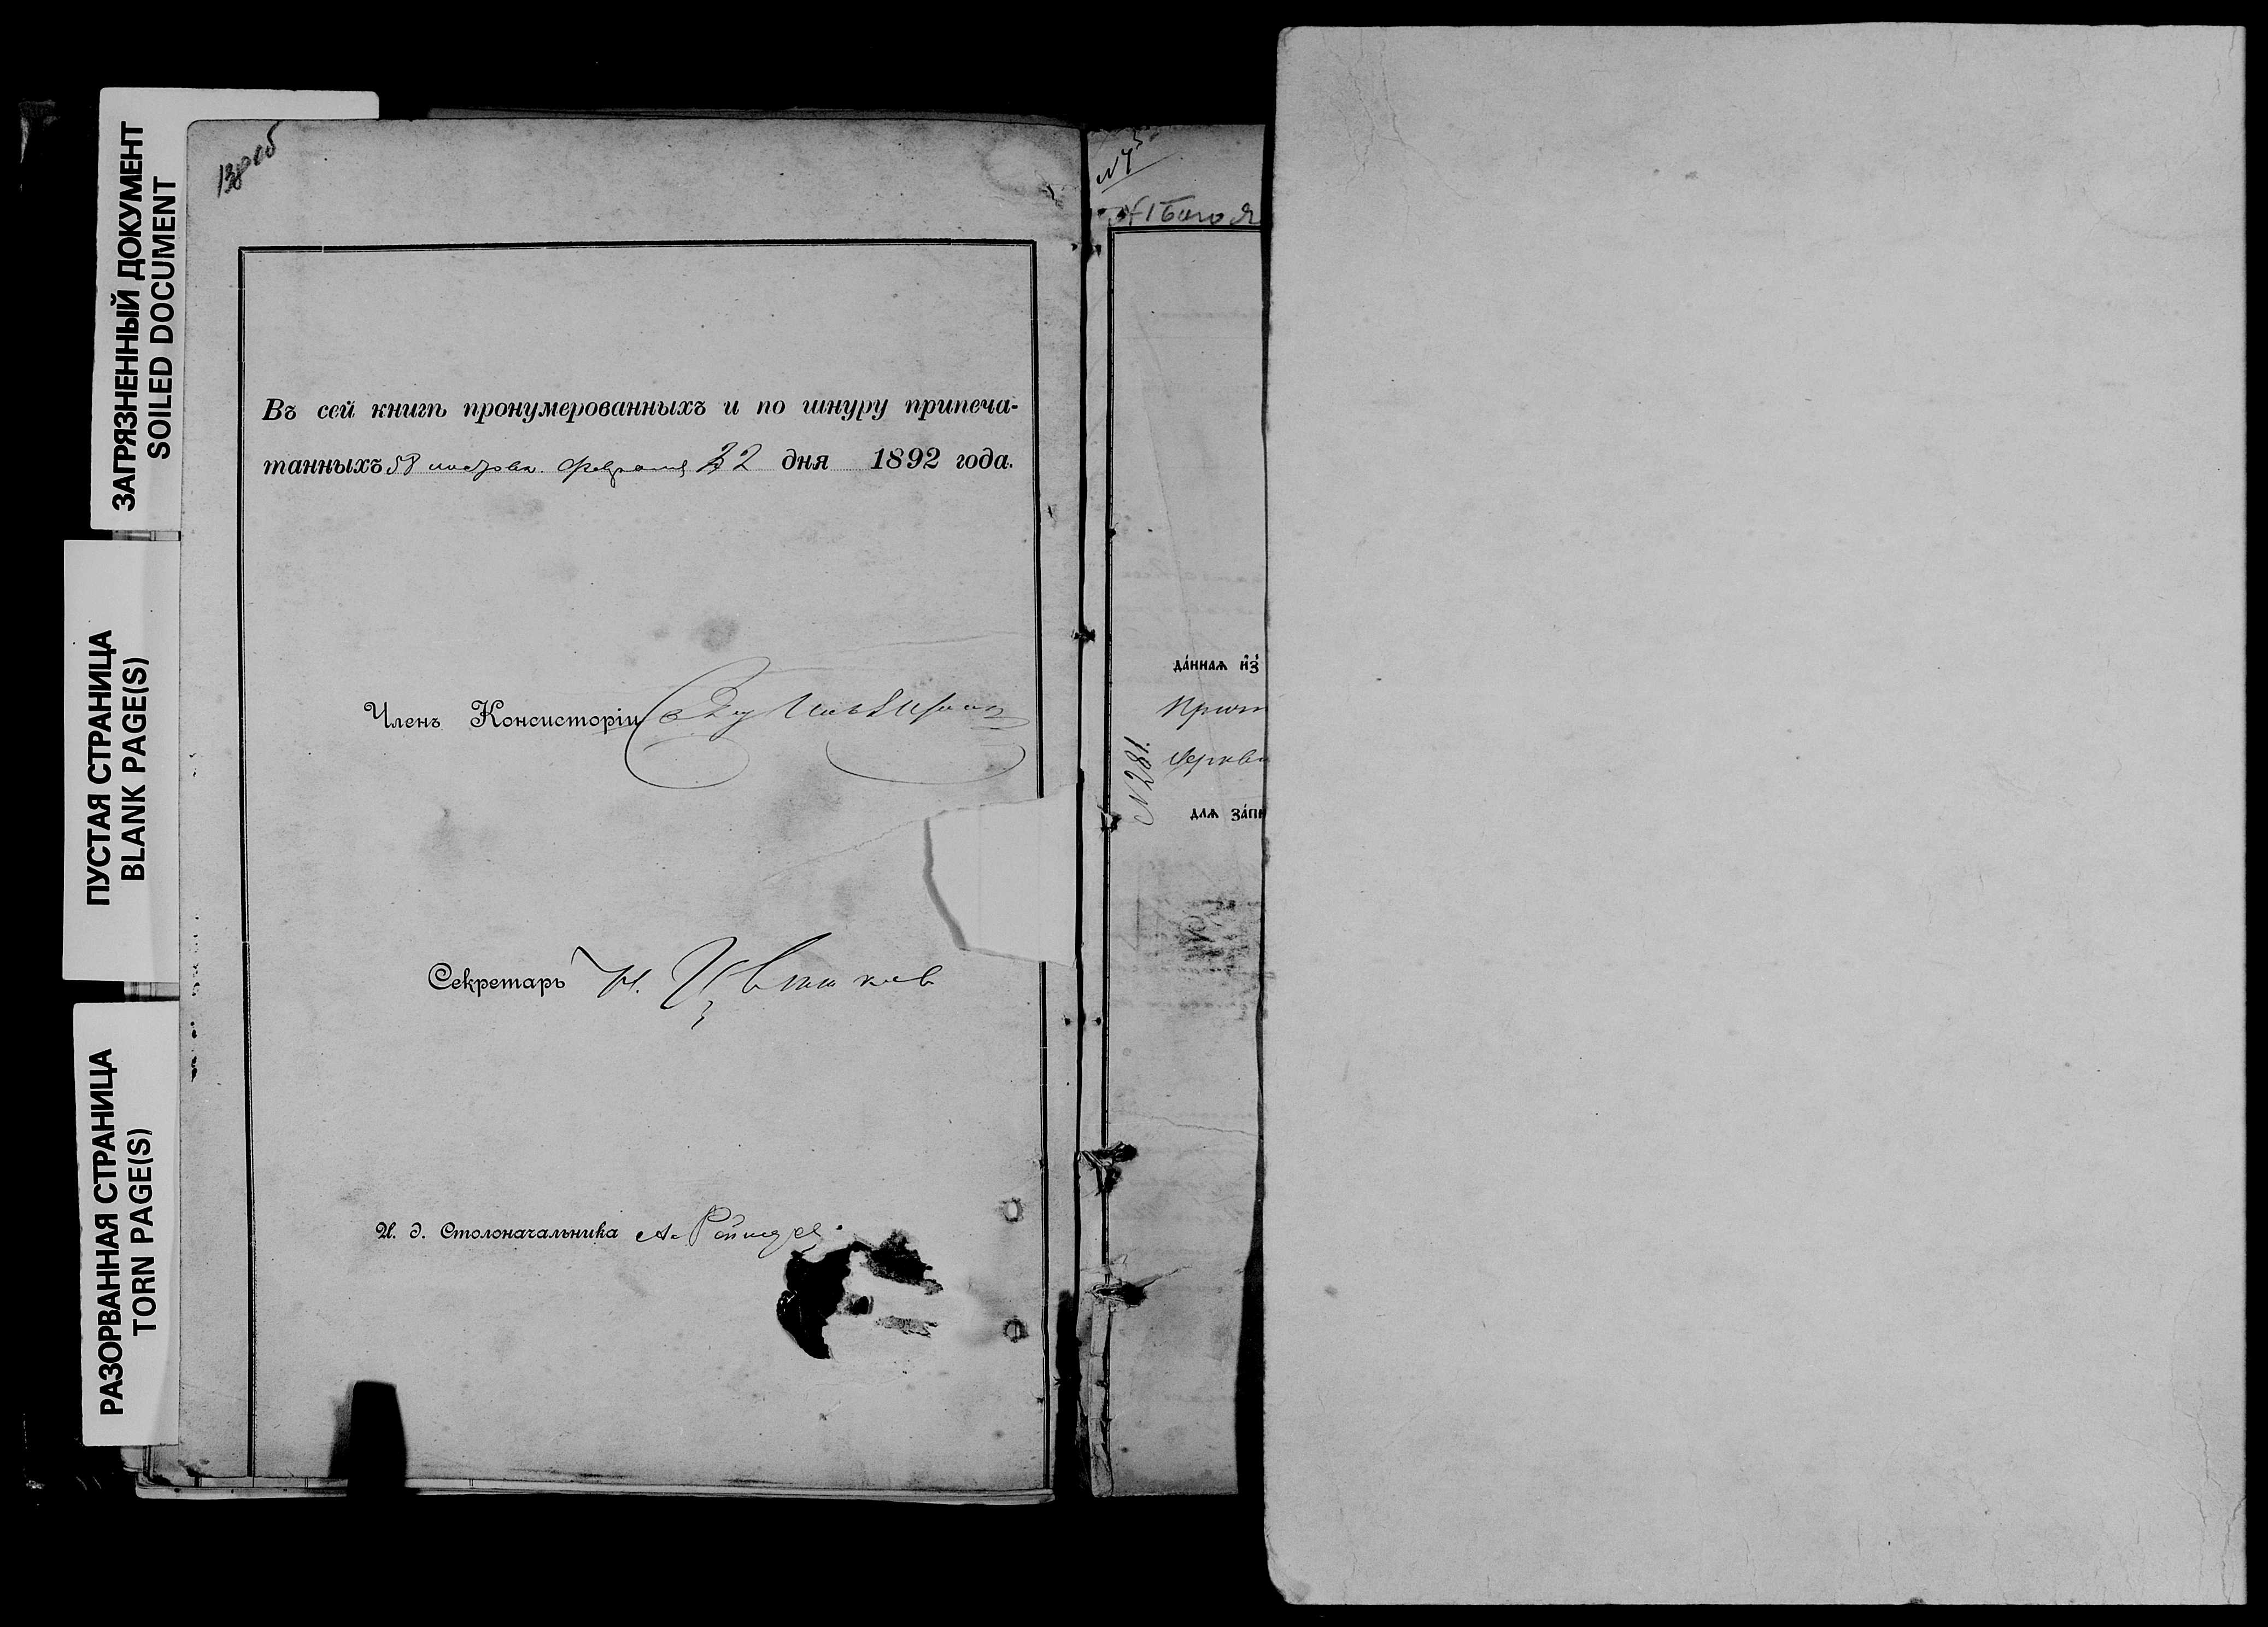 ЗАГРЯЗНЕННЫЙ ДОКУМЕНТ
SOILED DOCUMENT
ПУСТАЯ СТРАНИЦА
BLANK PAGE(S)
РАЗОРВАННАЯ СТРАНИЦА
TORN PAGE(S)
138 об
Въ сей книгѣ пронумерованныхъ и по шнуру припеча-
танныхъ 58 листовъ. Февраля 22 дня 1892 года.
Членъ Консисторіи
Секретарь Н. Цвѣтков
И. д. Столоначальника А.
да́ннаѧ и҆з̾
Причт
церкви
N 281.
длѧ за́пи